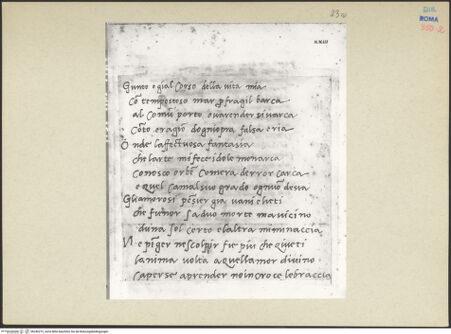 23
DIR
ROMA
XXIII
Giunto e gia l corso della vita mia
cō tempestoso mar p fragil barca
al comū porto ovarender si varca
cōto e ragiō dogniopra falsa e ria
Onde laffectuosa fantasia
che larte mi fece idol e monarca
conosco or bē comera derror carca
e quel camalsuo grado ogniuō desia
Gliamorosi pēsier gia vani e lieti
che fien or sa duo morte mavicino
duna so l certo e laltra mi minaccia
Ne pinger ne scolpir fie piu che quieti
lanima volta a quellamor divino
caperse aprender noi n croce le braccia